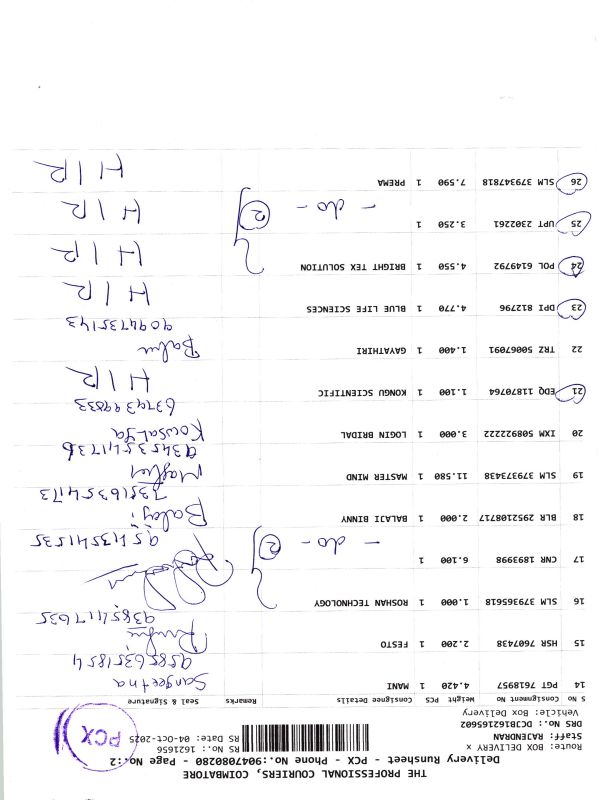 THE PROFESSIONAL COURIERS, COIMBATORE
Delivery Runsheet - PCX - Phone No.:9047080280 - Page No.:2
Route: BOX DELIVERY x
Staff: RAJENDRAN
DRS No.: DCB162165602
Vehicle: Box Delivery
RS No.: 1621656
RS Date: 04-Oct-2025
PCX
S No Consignment No Weight PCS Consignee Details Remarks Seal & Signature
14 PGT 7618957 4.420 1 MANI Sangeetha
95856351854
15 HSR 7607438 2.200 1 FESTO
93854117635
16 SLM 379365618 1.000 1 ROSHAN TECHNOLOGY
17 CNR 1893998 6.100 1 - do - 2
9543541535
18 BLR 2952108717 2.000 1 BALAJI BINNY Balaji
7351635473
19 SLM 379373438 11.580 1 MASTER MIND
9345354736
20 IXM 508922222 3.000 1 LOGIN BRIDAL Kowsalya
6379399833
21 EDQ 11870764 1.100 1 KONGU SCIENTIFIC HIR
22 TRZ 50067091 1.400 1 GAYATHIRI Babu
9094735143
23 DPI 812796 4.770 1 BLUE LIFE SCIENCES HIR
24 POL 6149792 4.550 1 BRIGHT TEX SOLUTION HIR
25 UPT 2302261 3.250 1 - do - 2 HIR
26 SLM 379347818 7.590 1 PREMA HIR